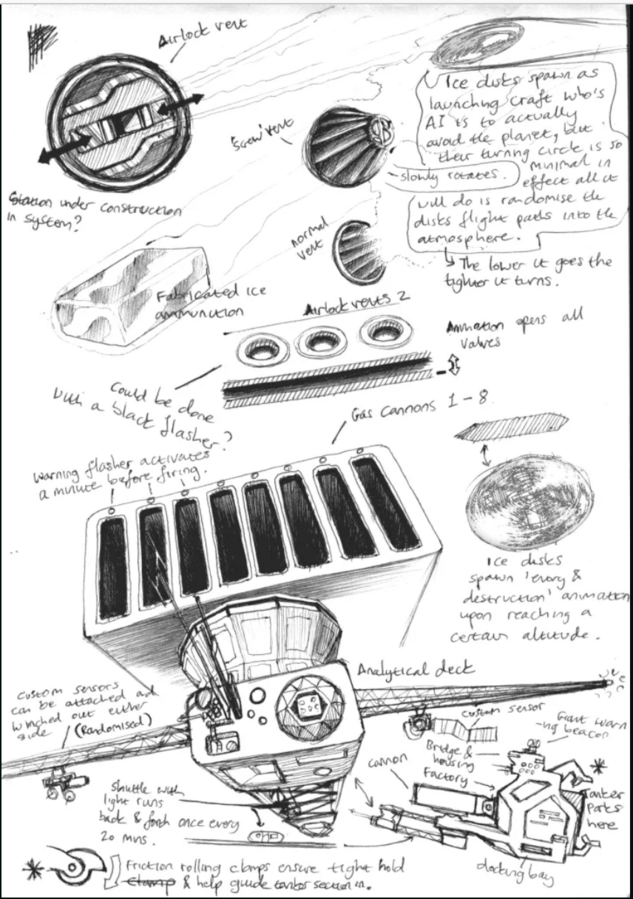 Airlock vent
Station under construction
in system?
'Screw' vent
slowly rotates.
Ice disks spawn as
launching craft who's
AI is to actually
avoid the planet, but
their turning circle is so
minimal in
effect all it
will do is randomise the
disks flight paths into the
atmosphere.
The lower it goes the
tighter it turns.
normal
vent
Fabricated ice
ammunition
Airlock vents 2
Animation opens all
valves
Could be done
with a black flasher?
Gas Cannons 1-8
Warning flasher activates
a minute before firing.
Ice disks
spawn 'every &
destruction' animation
upon reaching a
certain altitude.
Analytical deck
Custom sensors
can be attached and
winched out either
side (Randomised)
custom sensor
Giant warn
-ing beacon
Bridge &
housing
Factory
cannon
Tanker
parts
here
docking bay
Shuttle with
light runs
back & forth once every
20 mins.
Friction rolling clamps ensure tight hold
Clamp & help guide tanker section in.